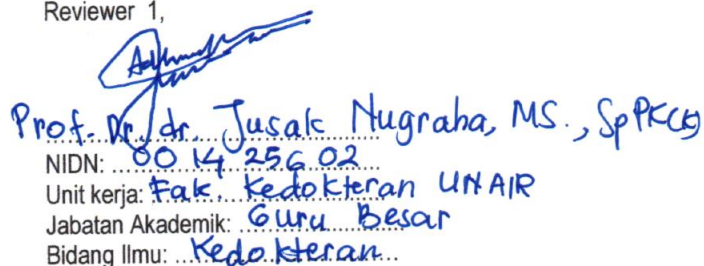 Reviewer 1,
Prof. Dr. dr. Jusak Nugraha, MS., SpPK(K)
NIDN: 00 14 256 02
Unit kerja: Fak. Kedokteran UNAIR
Jabatan Akademik: Guru Besar
Bidang Ilmu: Kedokteran